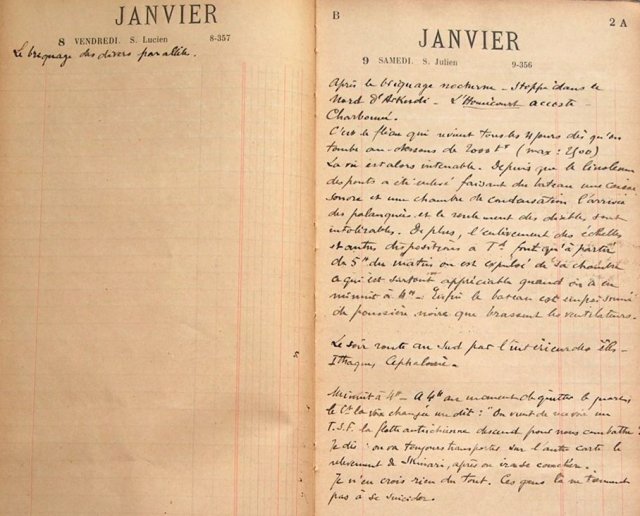 JANVIER
8 VENDREDI. S. Lucien 8-357
Le briquage des divers parallèles.
B
2 A
JANVIER
9 SAMEDI. S. Julien 9-356
Après le briquage nocturne – Stoppé dans le
Nord d'Arkudi – L'Homicourt accoste –
Charbonné.
C'est le fléau qui revient tous les 4 jours dès qu'on
tombe au-dessous de 2000 tx (max : 2500)
La vie est alors intenable. Depuis que le linoleum
des ponts a été enlevé faisant du bateau une caisse
sonore et une chambre de condensation l'arrivée
des palanquées et le roulement des diables sont
intolérables. De plus, l'enlèvement des échelles
et autres dispositions à Td font qu'à partir
de 5h du matin on est expulsé de sa chambre
ce qui est surtout appréciable quand on a eu
minuit à 4h – Enfin le bateau est empoisonné
de poussière noire que brassent les ventilateurs.
Le soir route au Sud par l'intérieur des îles –
Ithaque, Céphalonie.
Minuit à 4h – A 4h au moment de quitter le quart
le Ct la voix changée me dit : "On vient de recevoir un
T.S.F. la flotte autrichienne descend pour nous combattre"
Je dis : on va toujours transporter sur l'autre carte le
relèvement de Skinari, après on ira se coucher.
Je n'en crois rien du tout. Ces gens là ne tiennent
pas à se suicider.